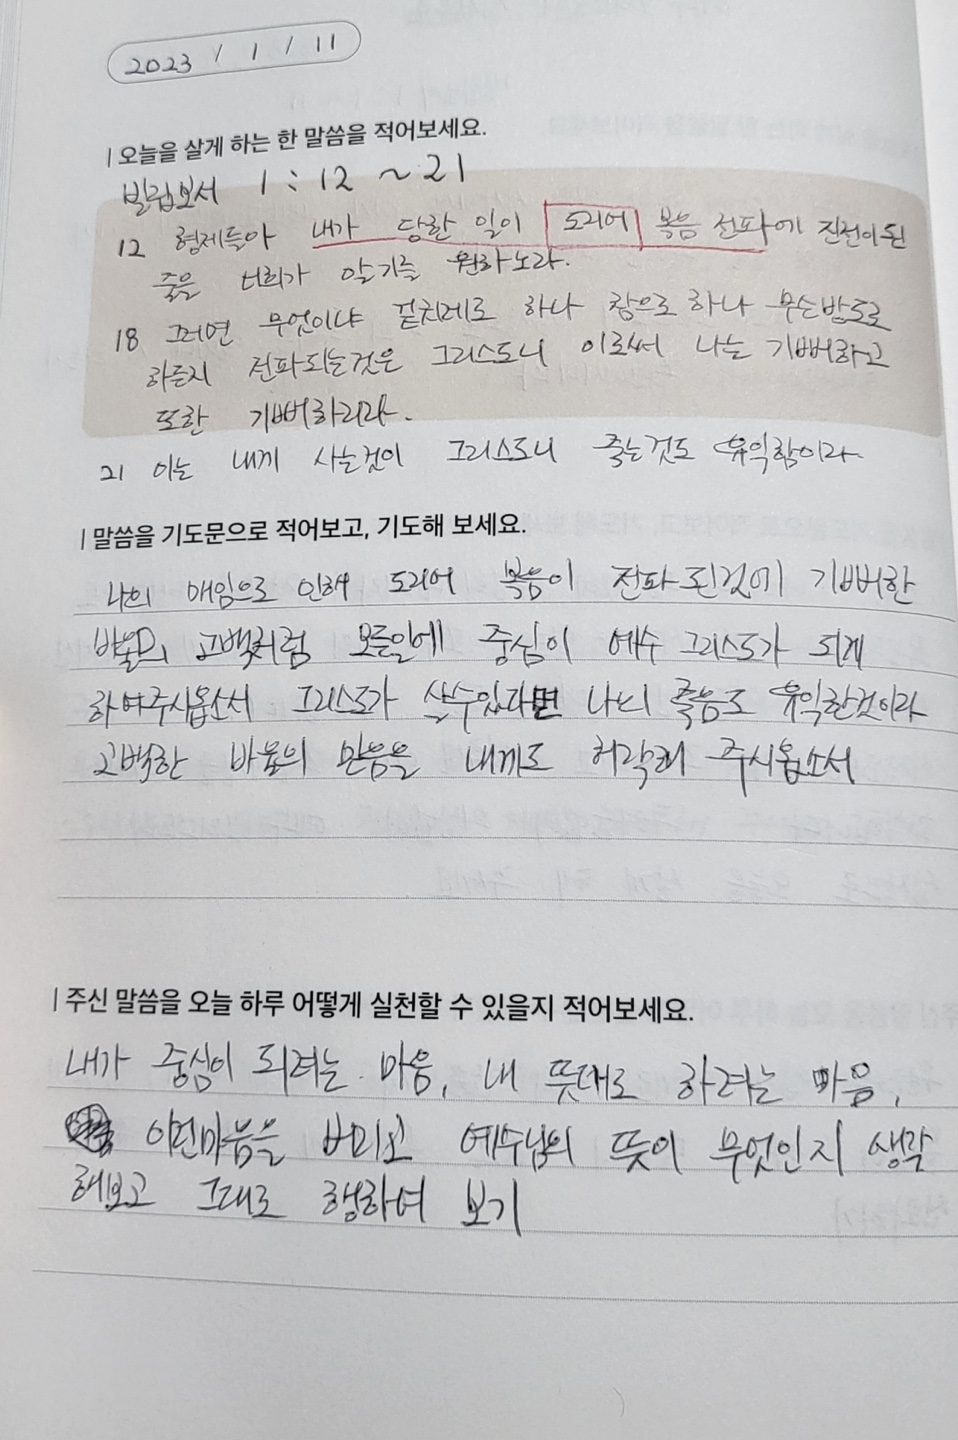 2023 / 1 / 11
| 오늘을 살게 하는 한 말씀을 적어보세요.
빌립보서 1 : 12 ~ 21
12 형제들아 내가 당한 일이 도리어 복음 전파에 진전이 된
줄을 너희가 알기를 원하노라.
18 그러면 무엇이냐 겉치레로 하나 참으로 하나 무슨방도로
하든지 전파되는것은 그리스도니 이로써 나는 기뻐하고
또한 기뻐하리라.
21 이는 내게 사는것이 그리스도니 죽는것도 유익함이라
| 말씀을 기도문으로 적어보고, 기도해 보세요.
나의 매임으로 인해 도리어 복음이 전파 된것에 기뻐한
바울의 고백처럼 모든일에 중심이 예수 그리스도가 되게
하여주시옵소서 그리스도가 살수있다면 나의 죽음도 유익한것이라
고백한 바울의 믿음을 내게도 허락해 주시옵소서
| 주신 말씀을 오늘 하루 어떻게 실천할 수 있을지 적어보세요.
내가 중심이 되려는 마음, 내 뜻대로 하려는 마음,
이런마음을 버리고 예수님의 뜻이 무엇인지 생각
해보고 그대로 행하여 보기